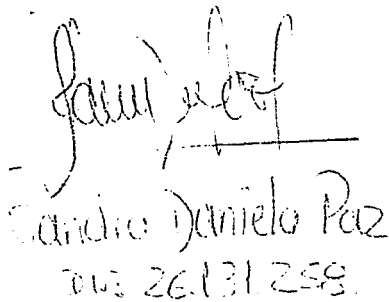 Sandro Danielo Paz
DNI: 26.131.258